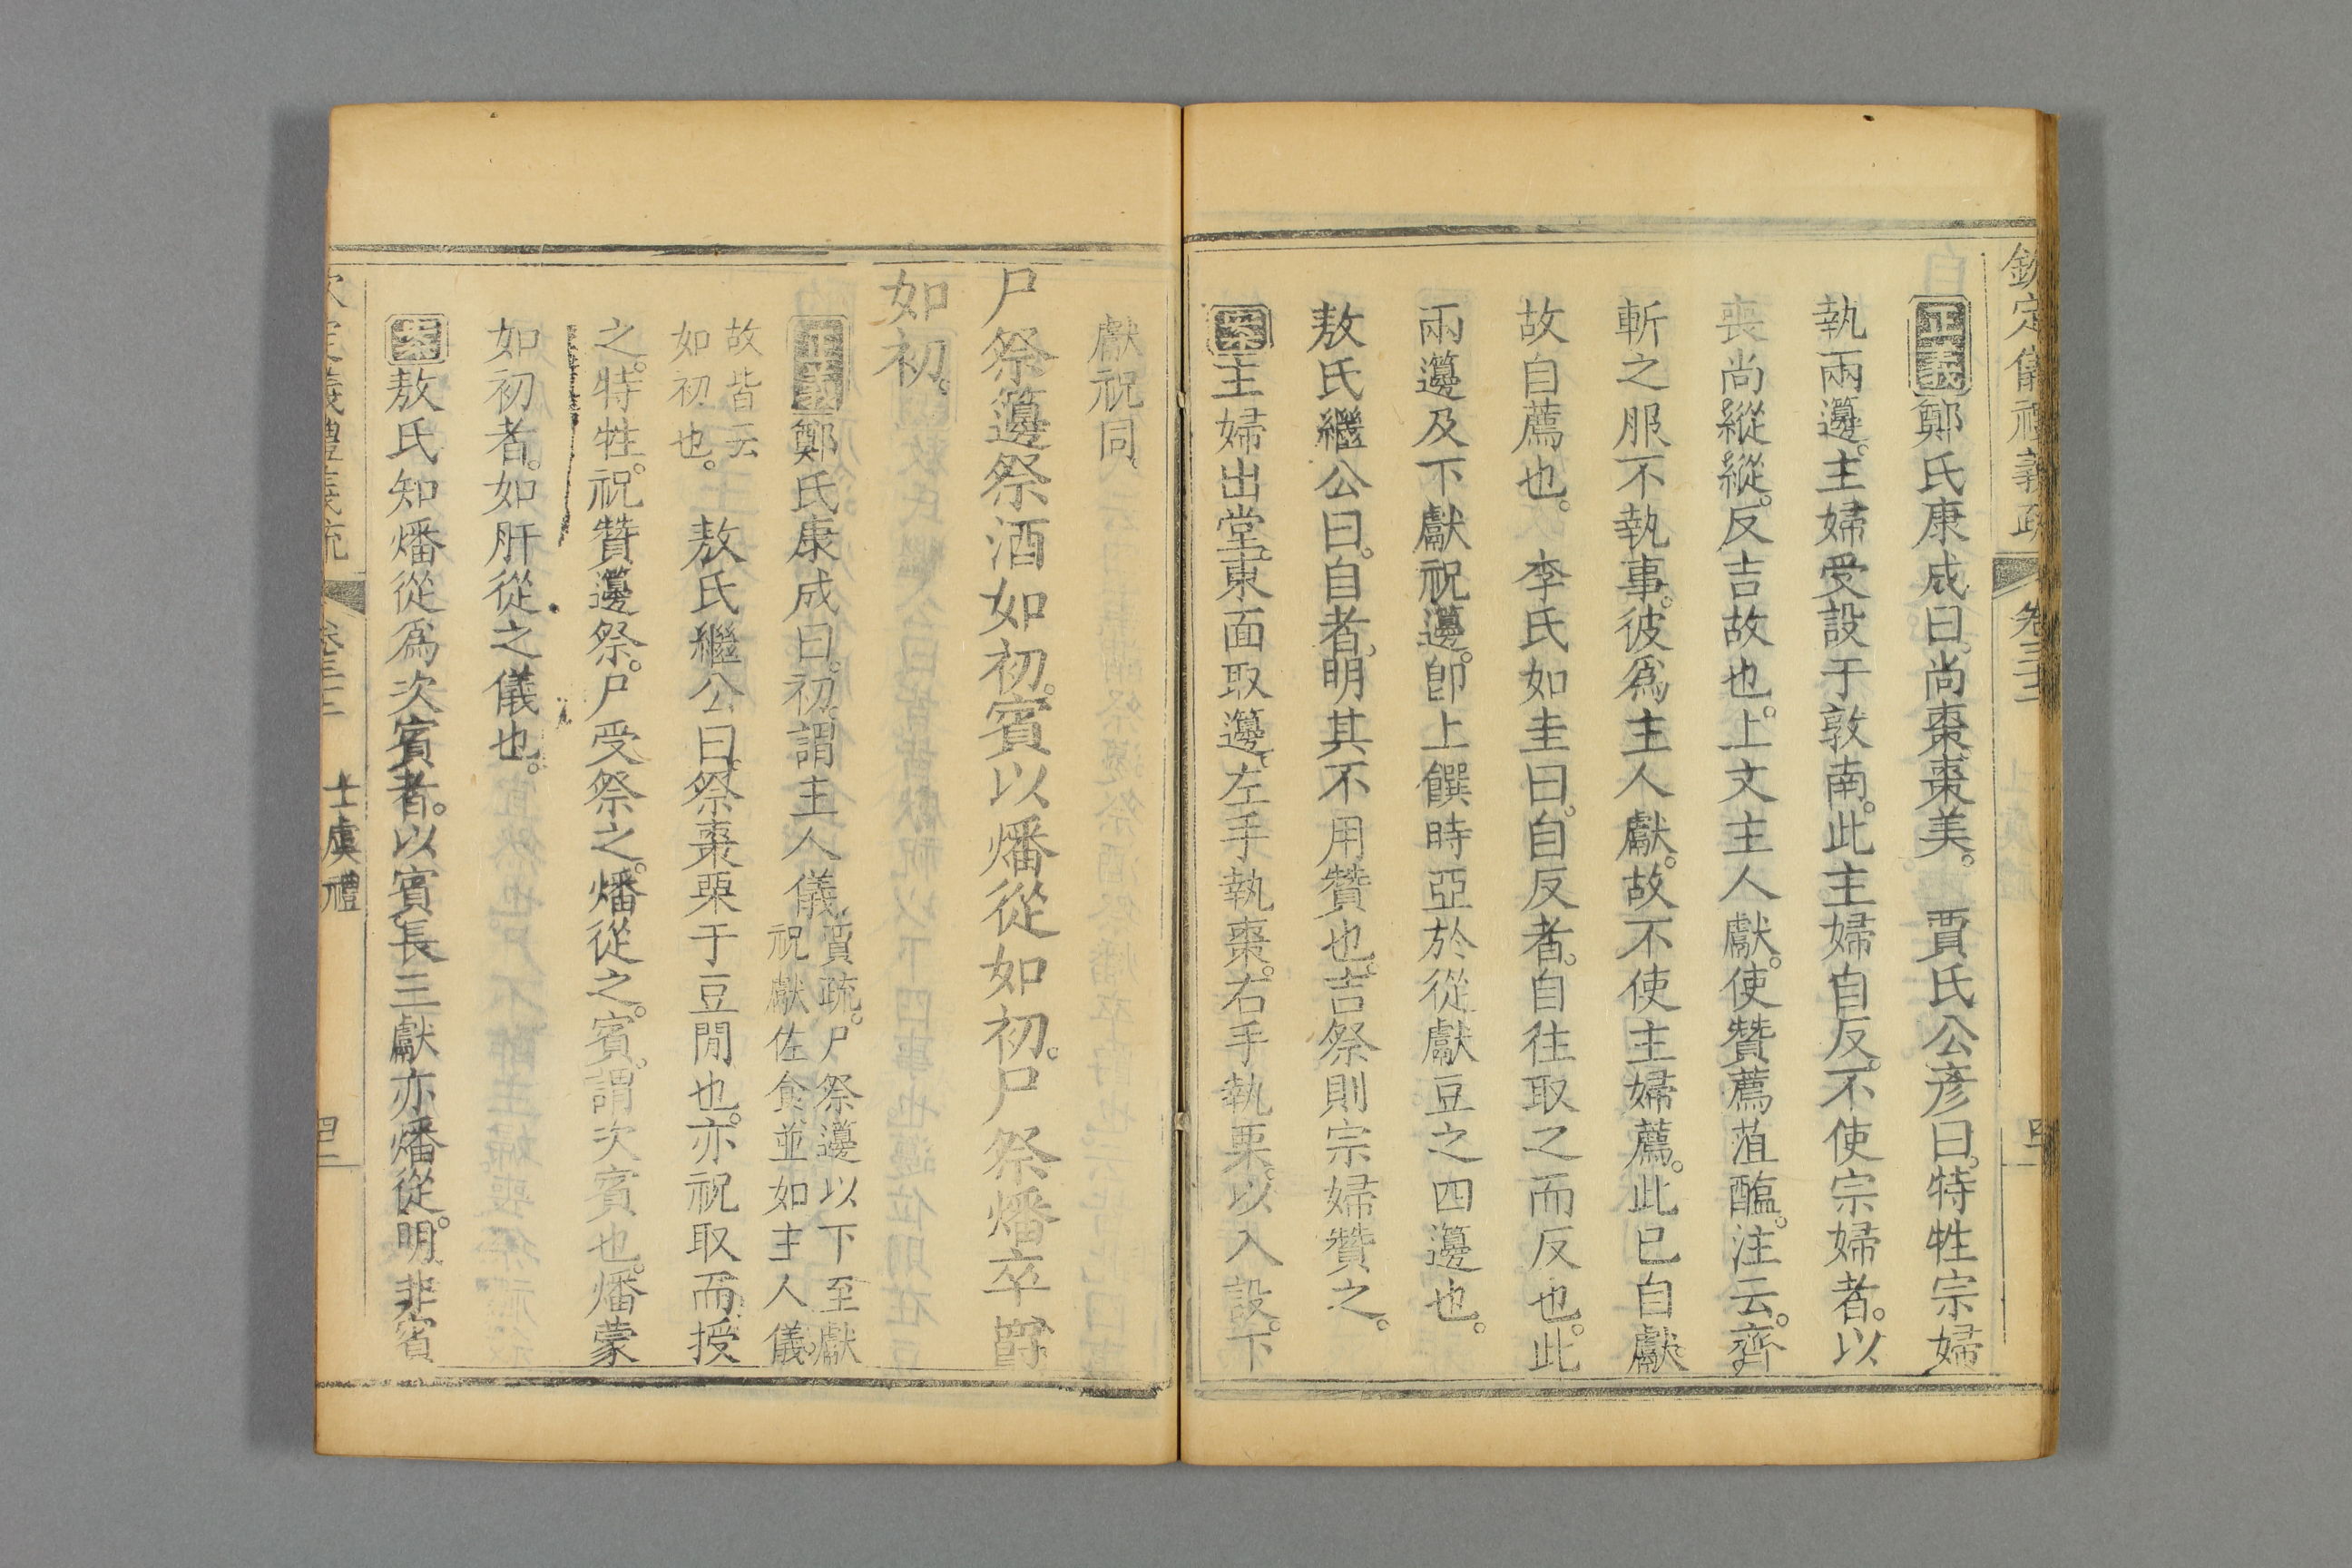 欽定儀禮義疏 卷三十二
正義鄭氏康成曰尚棗棗美。 賈氏公彥曰特牲宗婦
執兩籩。主婦受設于敦南。此主婦自反。不使宗婦者。以
喪尚縱縱。反吉故也。上文主人獻。使贊薦菹醢。注云。齊
斬之服不執事。彼爲主人獻。故不使主婦薦。此已自獻
故自薦也。 李氏如圭曰。自反者。自往取之而反也。此
兩籩及下獻祝籩。卽上饌時亞於從獻豆之四籩也。
敖氏繼公曰。自者。明其不用贊也。吉祭則宗婦贊之。
案主婦出堂東面取籩。左手執棗。右手執栗。以入設。下
獻祝同。
尸祭籩祭酒如初。賓以燔從如初。尸祭燔卒爵
如初。
正義鄭氏康成曰。初。謂主人儀。賈疏。尸祭籩以下至獻
祝獻佐食並如主人儀。
故皆云
如初也。 敖氏繼公曰。祭棗栗于豆閒也。亦祝取而授
之。特牲。祝贊籩祭。尸受祭之。燔從之。賓。謂次賓也。燔蒙
如初者。如肝從之儀也。
案敖氏知燔從爲次賓者。以賓長三獻亦燔從。明非賓
士虞禮